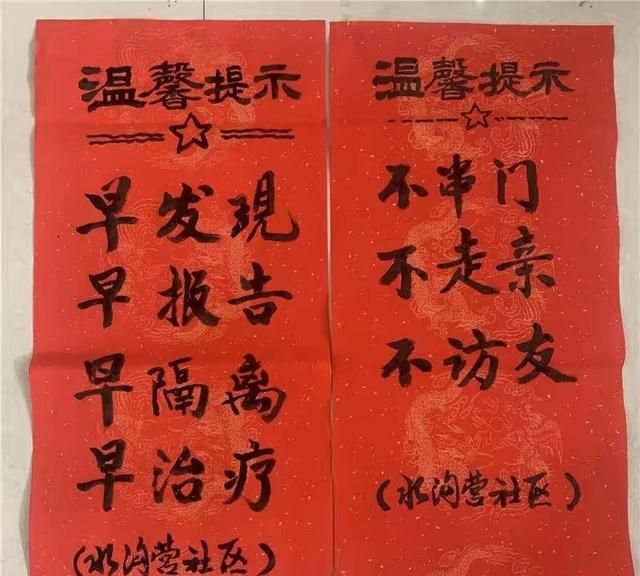 温馨提示
早发現
早报告
早隔离
早治疗
(水沟营社区)
温馨提示
不串门
不走亲
不访友
(水沟营社区)